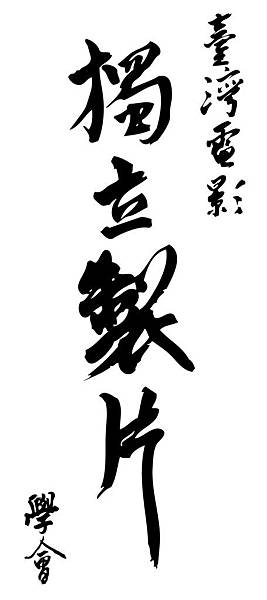 臺灣電影
獨立製片
學會